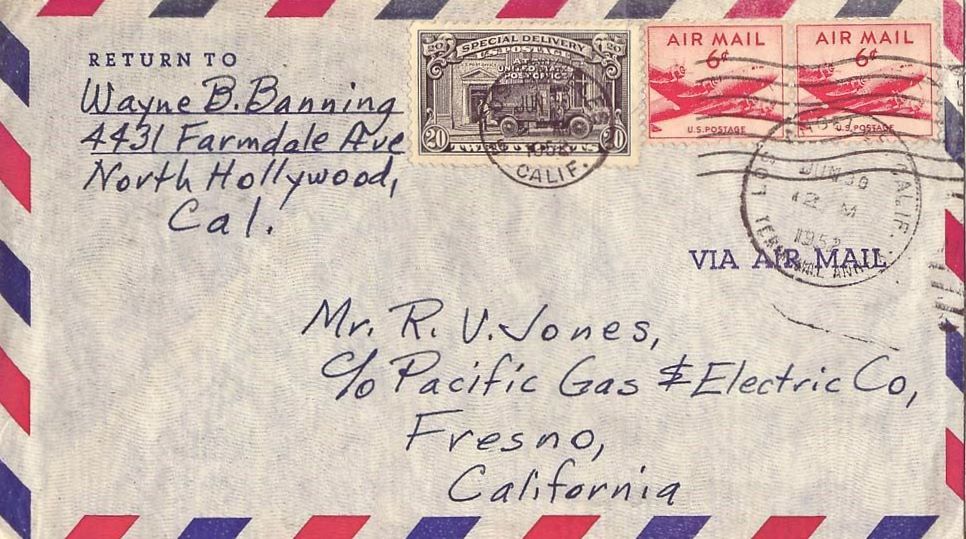 RETURN TO
Wayne B. Banning
4431 Farmdale Ave
North Hollywood,
Cal.
20 SPECIAL DELIVERY 20
U.S. POSTAGE
AT ANY
UNITED STATES
POST OFFICE
20 20
JUN
CALIF.
AIR MAIL
6¢
U.S. POSTAGE
AIR MAIL
6¢
U.S. POSTAGE
LOS ANGELES CALIF.
JUN 30
12 M
1952
TERMINAL ANNEX
VIA AIR MAIL
Mr. R. V. Jones,
c/o Pacific Gas & Electric Co,
Fresno,
California